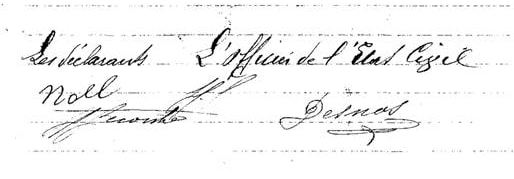 Les déclarants L'officier de l'Etat Civil
Noël
Lecomte Desnos